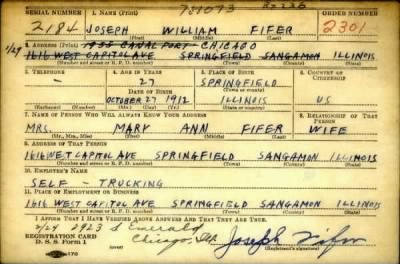 SERIAL NUMBER 1. NAME (Print) ORDER NUMBER
2184 JOSEPH WILLIAM FIFER 2301
(First) (Middle) (Last)
2. ADDRESS (Print) 1935 CANALPORT - CHICAGO
1/29 1616 WEST CAPITOL AVE SPRINGFIELD SANGAMON ILLINOIS
(Number and street or R. F. D. number) (Town) (County) (State)
3. TELEPHONE 4. AGE IN YEARS 5. PLACE OF BIRTH 6. COUNTRY OF CITIZENSHIP
- 27 SPRINGFIELD
DATE OF BIRTH (Town or county)
OCTOBER 27 1912 ILLINOIS US
(Mo.) (Day) (Yr.) (State or country)
7. NAME OF PERSON WHO WILL ALWAYS KNOW YOUR ADDRESS 8. RELATIONSHIP OF THAT PERSON
MRS. MARY ANN FIFER WIFE
(Mr., Mrs., Miss) (First) (Middle) (Last)
9. ADDRESS OF THAT PERSON
1616 WEST CAPITOL AVE SPRINGFIELD SANGAMON ILLINOIS
(Number and street or R. F. D. number) (Town) (County) (State)
10. EMPLOYER'S NAME
SELF - TRUCKING
11. PLACE OF EMPLOYMENT OR BUSINESS
1616 WEST CAPITOL AVE SPRINGFIELD SANGAMON ILLINOIS
(Number and street or R. F. D. number) (Town) (County) (State)
I AFFIRM THAT I HAVE VERIFIED ABOVE ANSWERS AND THAT THEY ARE TRUE.
2923 S Emerald
REGISTRATION CARD Chicago, Ill Joseph Fifer
D. S. S. Form 1 (Registrant's signature)